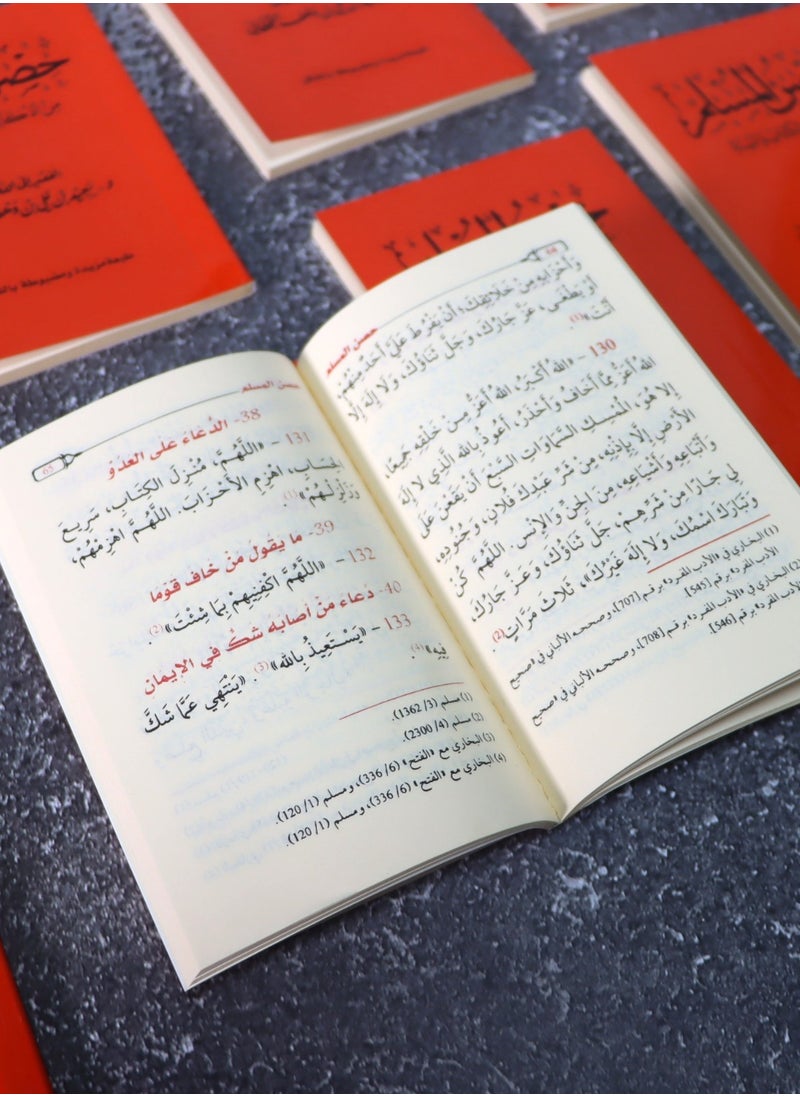 المسلم
طبعة مزيدة ومضبوطة
64
حصن المسلم
وَأَحْزَابِهِ مِنْ خَلَائِقِكَ، أَنْ يَفْرُطَ عَلَيَّ أَحَدٌ مِنْهُمْ،
أَوْ يَطْغَى، عَزَّ جَارُكَ، وَجَلَّ ثَنَاؤُكَ، وَلَا إِلَهَ إِلَّا
أَنْتَ»(1).
130 – «اللهُ أَكْبَرُ، اللهُ أَعَزُّ مِنْ خَلْقِهِ جَمِيعًا،
اللهُ أَعَزُّ مِمَّا أَخَافُ وَأَحْذَرُ، أَعُوذُ بِاللهِ الَّذِي لَا إِلَهَ
إِلَّا هُوَ، الْمُمْسِكِ السَّمَاوَاتِ السَّبْعِ أَنْ يَقَعْنَ عَلَى
الْأَرْضِ إِلَّا بِإِذْنِهِ، مِنْ شَرِّ عَبْدِكَ فُلَانٍ، وَجُنُودِهِ
وَأَتْبَاعِهِ وَأَشْيَاعِهِ، مِنَ الْجِنِّ وَالْإِنْسِ، اللَّهُمَّ كُنْ
لِي جَارًا مِنْ شَرِّهِمْ، جَلَّ ثَنَاؤُكَ، وَعَزَّ جَارُكَ،
وَتَبَارَكَ اسْمُكَ، وَلَا إِلَهَ غَيْرُكَ»، ثَلَاثَ مَرَّاتٍ(2).
(1) البخاري في «الأدب المفرد» برقم [707]، وصححه الألباني في «صحيح
الأدب المفرد» برقم [545].
(2) البخاري في «الأدب المفرد» برقم [708]، وصححه الألباني في «صحيح
الأدب المفرد» برقم [546].
حصن المسلم
65
38- الدُّعَاءُ عَلَى العَدُوِّ
131 – «اللَّهُمَّ، مُنْزِلَ الكِتَابِ، سَرِيعَ
الحِسَابِ، اهْزِمِ الأَحْزَابَ. اللَّهُمَّ اهْزِمْهُمْ،
وَزَلْزِلْهُمْ»(1).
39- ما يَقُولُ مَنْ خَافَ قَوْمًا
132 – «اللَّهُمَّ اكْفِنِيهِمْ بِمَا شِئْتَ»(2).
40- دُعَاءُ مَنْ أَصَابَهُ شَكٌّ فِي الإِيمَانِ
133 – «يَسْتَعِيذُ بِاللهِ»(3). «يَنْتَهِي عَمَّا شَكَّ
فِيهِ»(4).
(1) مسلم (3/ 1362).
(2) مسلم (4/ 2300).
(3) البخاري مع «الفتح» (6/ 336)، ومسلم (1/ 120).
(4) البخاري مع «الفتح» (6/ 336)، ومسلم (1/ 120).